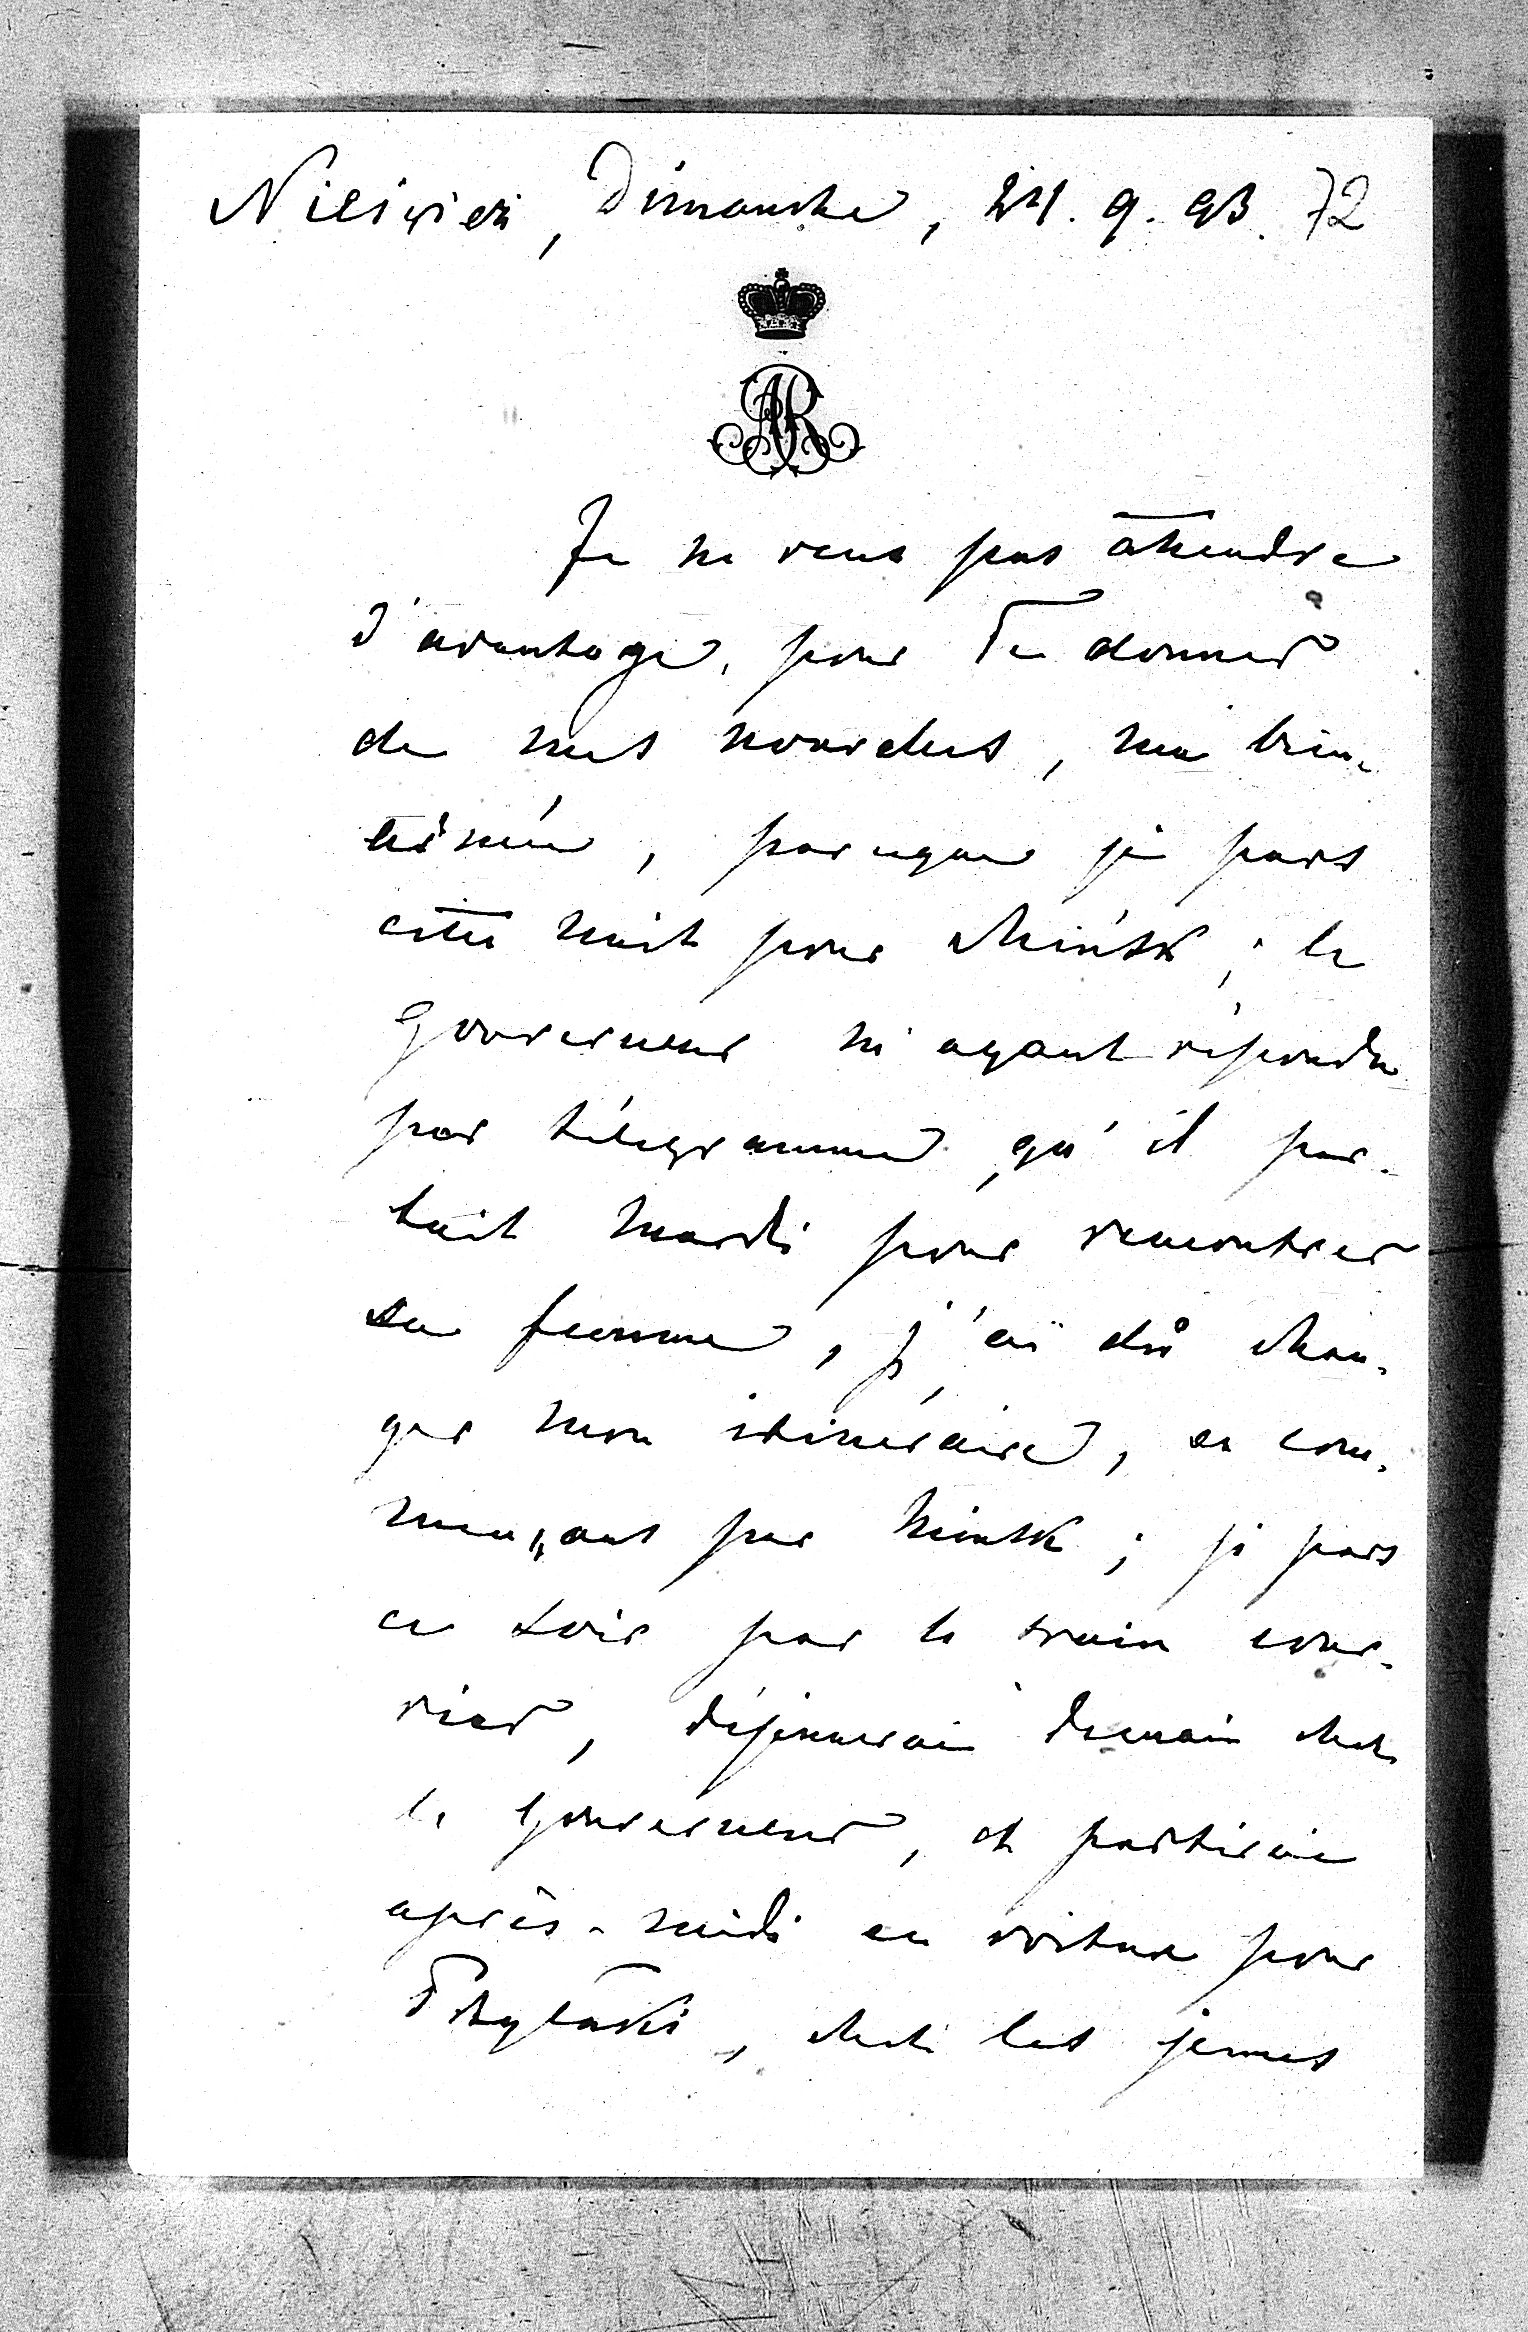 Nieśwież, Dimanche, 24. 9. 93. 72
AR
Je ne veux pas attendre
d'avantage, pour Te donner
de mes nouvelles, ma bien-
aimée, parceque je pars
cette nuit pour Mińsk; le
Gouverneur m'ayant répondu
par télégramme, qu'il par-
tait mardi pour rencontrer
sa femme, j'ai dû chan-
ger mon itinéraire, en com-
mençant par Mińsk; je pars
ce soir par le train cour-
rier, déjeunerai demain chez
le Gouverneur, et partirai
après-midi en voiture pour
chez les jeunes